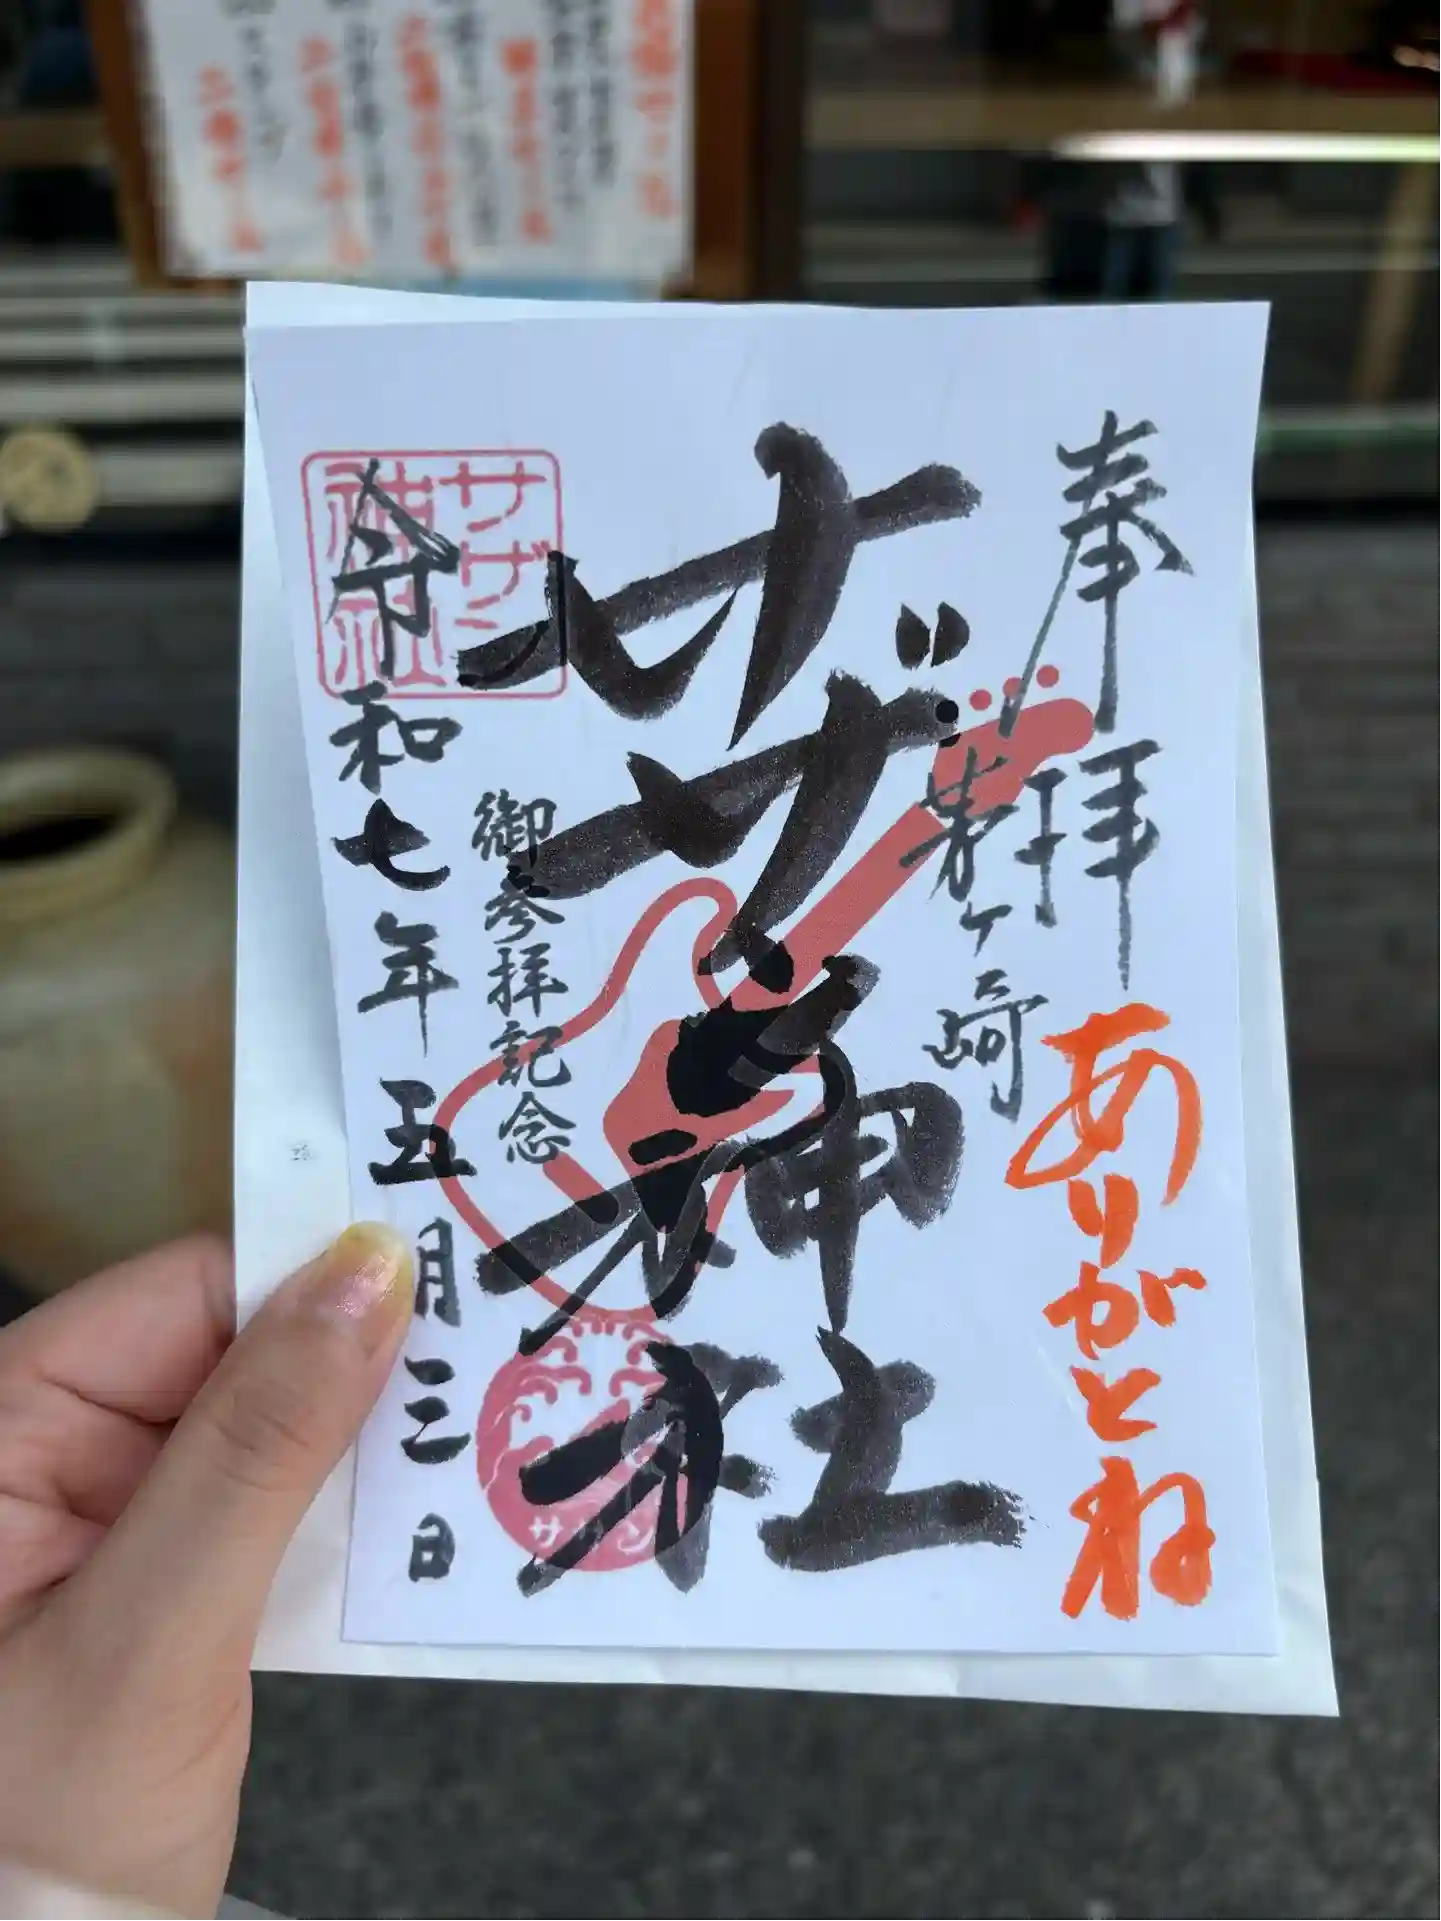 奉拝
ありがとね
茅ヶ崎
サザン神社
御参拝記念
令和七年五月三日
サザン
神社
サザン